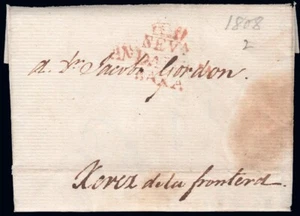 1808
2
NEVA
a Dn. Jacobo Gordon.
BAXA
Xerez de la frontera.